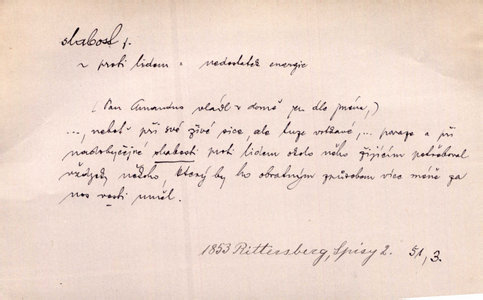 slabost f.
proti lidem = nedostatek energie
(Pan Amandus vládl v domě jen dle jména,)
..., neboť při své živé sice, ale tuze vrtkavé, ... povaze a při
neobyčejné slabosti proti lidem okolo něho žijícím potřeboval
vždycky někoho, který by ho obratným způsobem více méně za
nos vésti uměl.
1853 Rittersberg, Spisy 2. 51, 3.